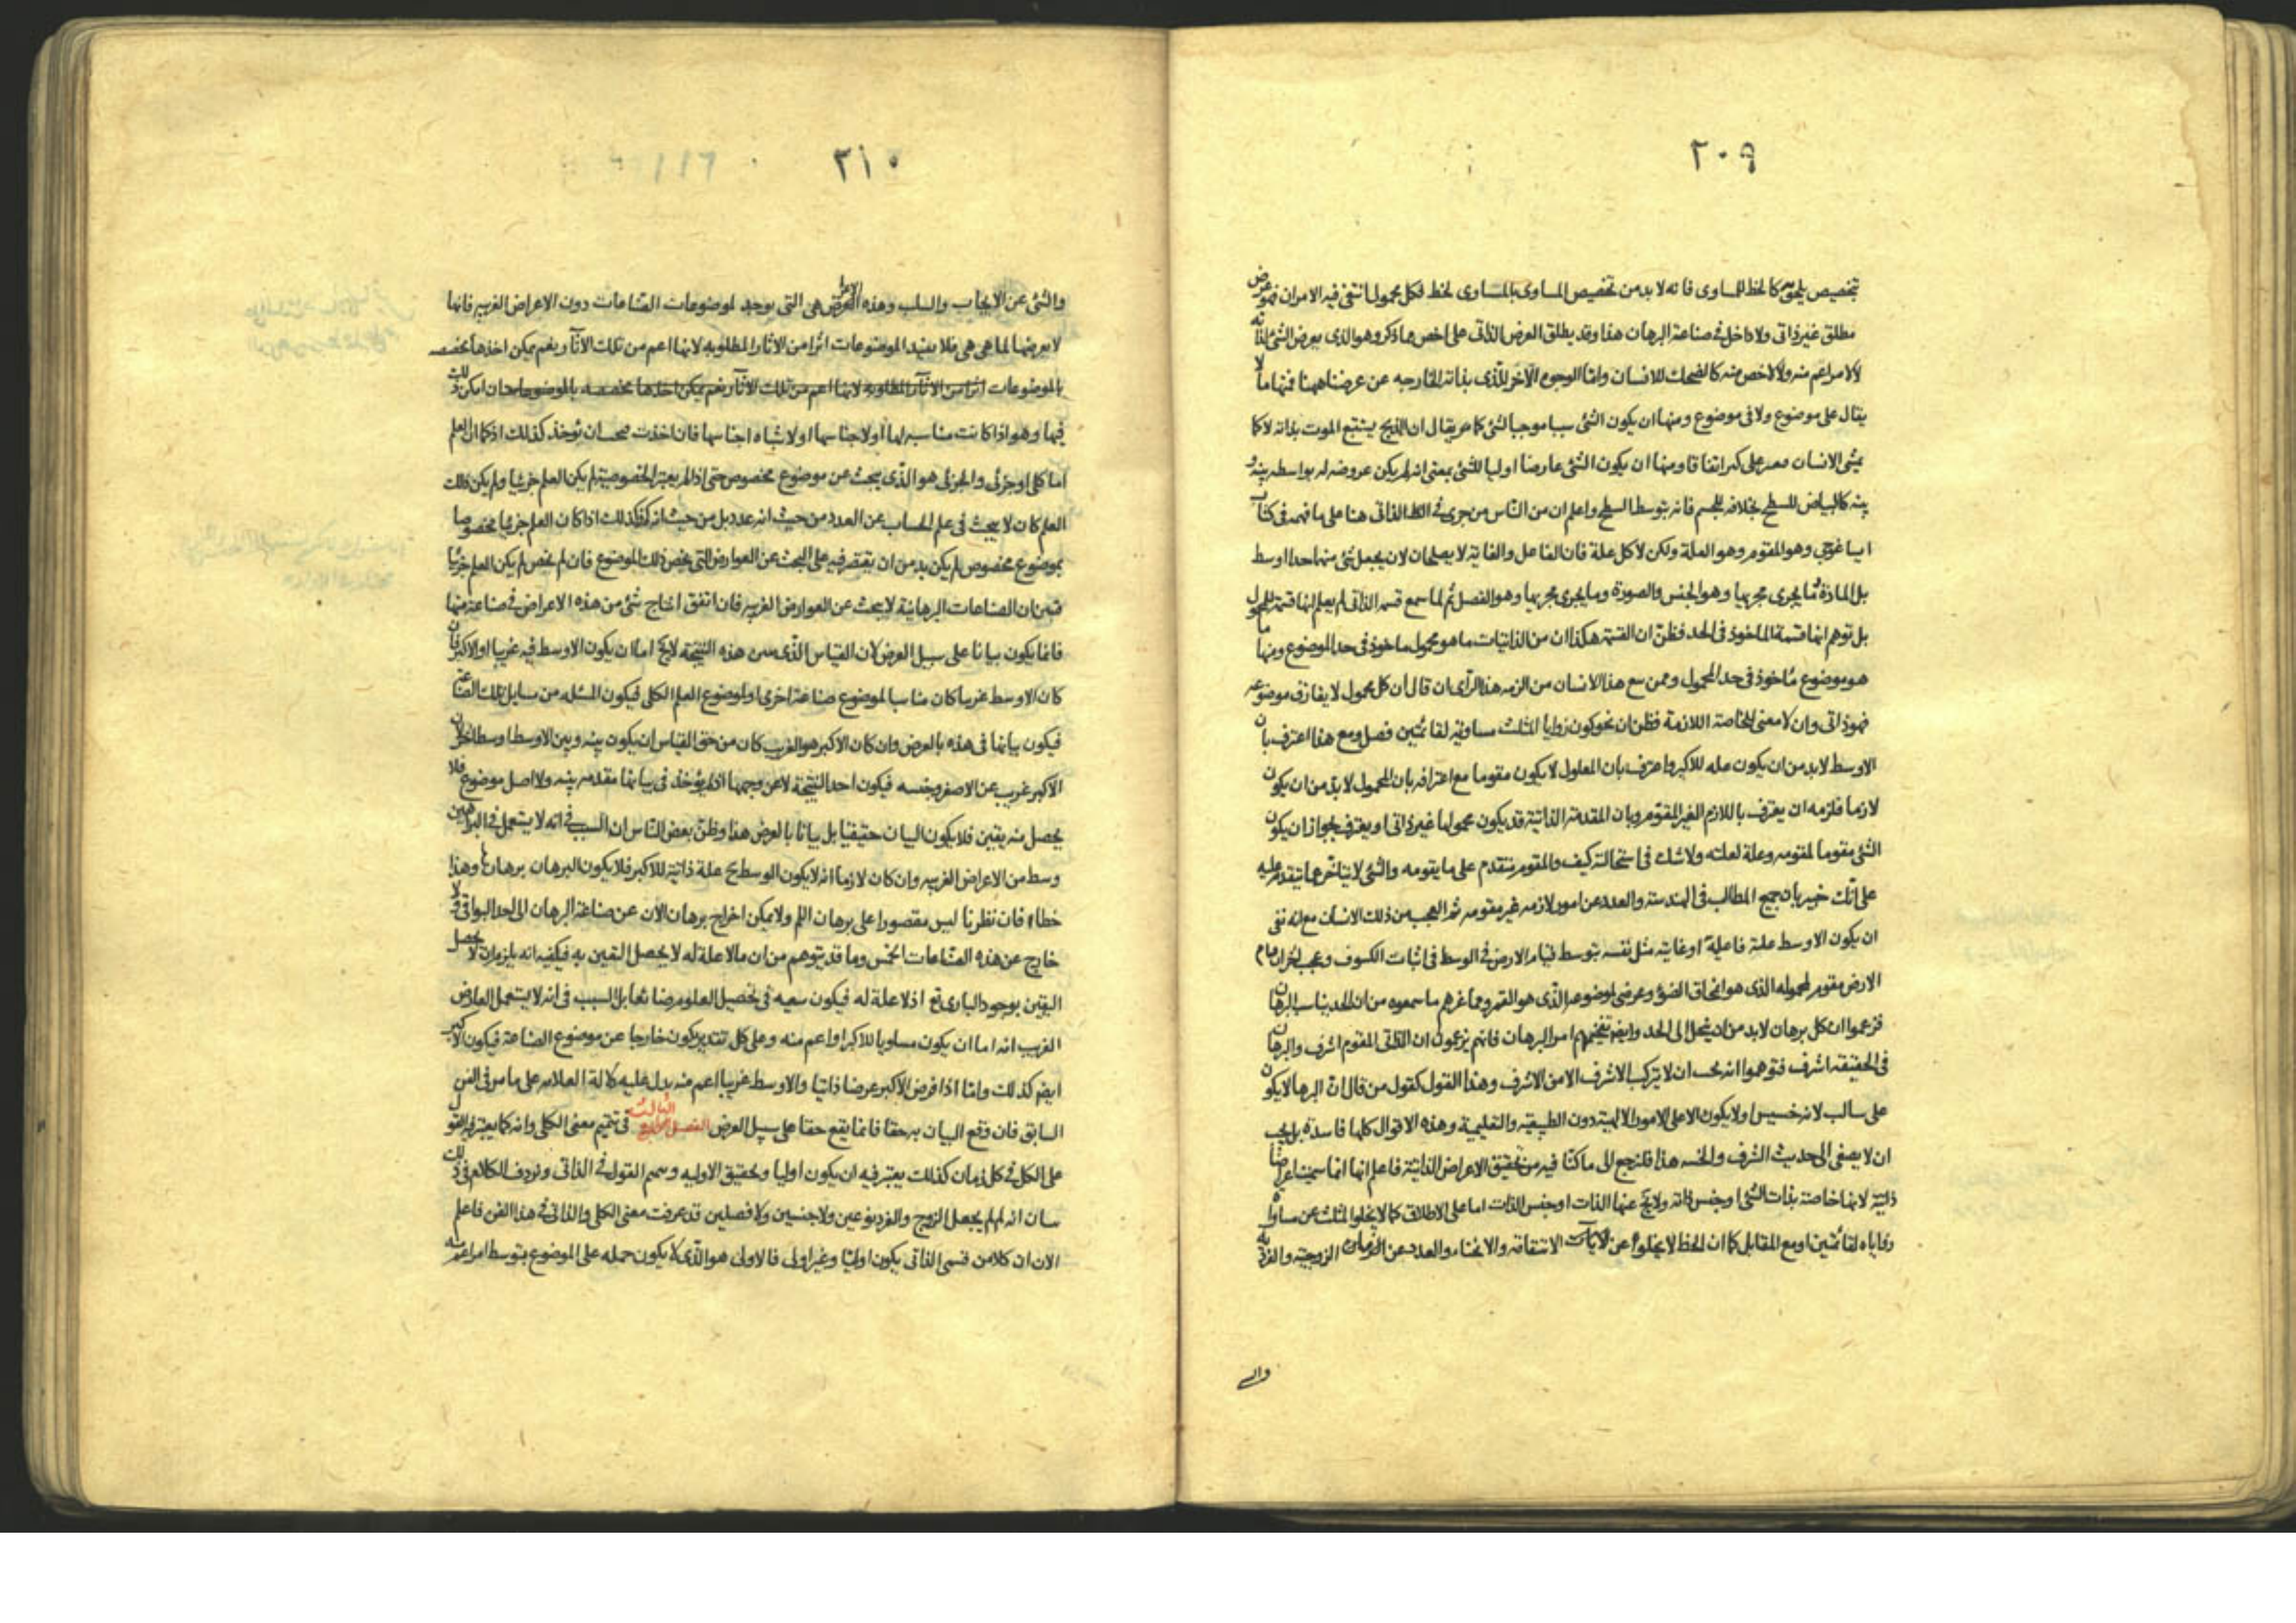 ٢٠٩
بتخصيص يلحقه كالخط المساوى فانه لابد من تخصيص المساوى بالمساوى لخط فكل محمول انتفى فيه الامران فهو عرض
مطلق غير ذاتى ولا داخل فى صناعة البرهان هذا وقد يطلق العرض الذاتى على اخص مما ذكر وهو الذى يعرض الشئ لذاته
لا لامر اعم منه ولا لاخص منه كالضحك للانسان واما الوجوه الآخر للذى بذاته الخارجه عن غرضنا ههنا فمنها ما لا
يقال على موضوع ولا فى موضوع ومنها ان يكون الشئ سببا موجبا لشئ كما يقال ان الذبح يتبع الموت بذاته لا كما
يمشى الانسان فيعثر على كنز اتفاقا ومنها ان يكون الشئ عارضا اوليا للشئ بمعنى انه لم يكن عروضه له بواسطه بينه و
بينه كالبياض للسطح بخلافه للجسم فانه بتوسط السطح واعلم ان من الناس من جرى فى الذاتى هنا على ما فهمه فى كتاب
ايساغوجى وهو المقوم وهو العلة ولكن لا كل علة فان الفاعل والغاية لا يصلحان لان يجعل شئ منهما حدا اوسط
بل المادة وما يجرى مجريها وهو الجنس والصورة وما يجرى مجريها وهو الفصل ثم لما سمع قسمة الذاتى لم يعلم انها قسمة للمحمول
بل توهم انها قسمة الماخوذ فى الحد فظن ان القسمة هكذا ان من الذاتيات ما هو محمول ماخوذ فى حد الموضوع ومنها ما
هو موضوع ماخوذ فى حد المحمول وممن سمع هذا الانسان من الزمه هذا الرأى ان قال ان كل محمول لا يفارق موضوعه
فهو ذاتى وان لا معنى للخاصة اللازمة فظن ان نحو كون زوايا المثلث مساوية لقائمتين فصل ومع هذا اعترف بان
الاوسط لابد من ان يكون علة للاكبر واعترف بان المعلول لا يكون مقوما مع اعترافه بان المحمول لابد من ان يكون
لازما فلزمه ان يعترف باللازم الغير المقوم وبان المقدمة الذاتية قد يكون محمولها غير ذاتى او يعترف بجواز ان يكون
الشئ مقوما لمقومه وعلة لعلته ولا شك فى استحالته كيف والمقوم متقدم على ما يقومه والشئ لا يتاخر عما يتقدم عليه
على انك خبير بان جميع المطالب فى الهندسة والعدد عن امور لازمه غير مقومه ثم العجب من ذلك الانسان مع انه نفى
ان يكون الاوسط علة فاعلية او غاية مثل نفسه بتوسط قيام الارض فى الوسط فى اثبات الكسوف وعجب اخر ان قيام
الارض مقوم لمحموله الذى هو انمحاق الضوء وعرضى لموضوعه الذى هو القمر ومما غرهم ما سمعوه من ان الحد يناسب البرهان
فزعموا ان كل برهان لابد من ان ينحل الى الحد وايضا تفخيمهم امر البرهان فانهم يزعمون ان الذاتى المقوم اشرف والبرهان
فى الحقيقه اشرف فتوهموا انه يجب ان لا يتركب الاشرف الا من الاشرف وهذا القول كقول من قال ان البرهان لا يكون
على سالب لانه خسيس او لا يكون الا على الامور الالهية دون الطبيعية والتعليمية وهذه الاقوال كلها فاسدة بل يجب
ان لا يصغى الى حديث الشرف والخسه هذا فلنرجع الى ما كنا فيه من تحقيق الاعراض الذاتية فاعلم انها انما سميت اعراضا
ذاتية لانها خاصة بذات الشئ او جنس ذاته ولا يخ عنها الذات او جنس الذات اما على الاطلاق كما لا يخلو المثلث عن مساواة
زواياه لقائمتين او مع المقابل كما ان الخط لا يخلو عن الاستقامة والانحناء والعدد عن الزوجية والفردية
والـ
٢١٠
١١٦
والشئ عن الايجاب والسلب وهذه الاعراض هى التى يوجد لموضوعات الصناعات دون الاعراض الغريبه فانها
لا يعرضها لما هى هى فلا يفيد الموضوعات اثرا من الاثار المطلوبه لانها اعم من تلك الآثار ونعم يمكن اخذها مخصصه
بالموضوعات اثرا من الاثار المطلوبه لانها اعم من تلك الاثار ونعم يمكن اخذها مخصصه بالموضوعات ان امكن ذلك
فيها وهو اذا كانت مناسبه لها او لاجناسها او لاشباه اجناسها فان اخذت يجب ان يؤخذ كذلك اذ كما ان العلم
اما كلى او جزئى والجزئى هو الذى يبحث عن موضوع مخصوص حتى اذا لم يعتبر الخصوصية لم يكن العلم جزئيا ولم يكن ذلك
العلم كان لا يبحث فى علم الحساب عن العدد من حيث انه عدد بل من حيث انه كذلك اذا كان العلم جزئيا مخصوصا
بموضوع مخصوص لم يكن بد من ان يقتصر فيه على البحث عن العوارض التى يخص ذلك الموضوع فان لم يخص لم يكن العلم جزئيا
فتبين ان الصناعات البرهانية لا يبحث عن العوارض الغريبه فان اتفق انتاج شئ من هذه الاعراض فى صناعة منها
فانما يكون بيانا على سبيل العرض لان القياس الذى هذه النتيجة لا يخ اما ان يكون الاوسط فيه غريبا او الاكبر فان
كان الاوسط غريبا كان مناسبا لموضوع صناعة اخرى او لموضوع العلم الكلى فيكون المسئله من مسايل تلك الصناعة
فيكون بيانها فى هذه بالعرض وان كان الاكبر هو الغريب كان من حق القياس ان يكون بينه وبين الاوسط اوسط اخر لان
الاكبر غريب عن الاصغر وجنسه فيكون احد النتيجة لا عن وجهها اذ لم يؤخذ فى بيانها مقدمه بينه ولا اصل موضوع فلا
يحصل منه يقين فلا يكون البيان حقيقيا بل بيانا بالعرض هذا وظن بعض الناس ان السبب فى انه لا يستعمل فى البراهين
وسط من الاعراض الغريبه وان كان لازما انه لا يكون الوسط ح علة ذاتية للاكبر فلا يكون البرهان برهانا وهذا
خطاء فان نظرنا ليس مقصورا على برهان اللم ولا يمكن اخراج برهان الان عن صناعة البرهان الى احد البواقى ولا
خارج عن هذه الصناعات الخمس وما قد يتوهم من ان ما لا علة له لا يحصل اليقين به فيكفيه انه يلزمه ان لا يحصل
اليقين بوجود البارى تع اذ لا علة له فيكون سعيه فى تحصيل العلوم ضائعا بل السبب فى انه لا يستعمل العارض
الغريب انه اما ان يكون مساويا للاكبر او اعم منه وعلى كل تقدير يكون خارجا عن موضوع الصناعة فيكون الاكبر
ايضا كذلك واما اذا فرض الاكبر عرضا ذاتيا والاوسط غريبا اعم منه يدل عليه كالة العلامه على ما مر فى الفن
السابق فان وقع البيان به حقا فانما يقع حقا على سبيل العرض الفصل الثالث فى تتميم معنى الكلى وانه كما يعتبر فيه القول
على الكل فى كل زمان كذلك يعتبر فيه ان يكون اوليا وتحقيق الاوليه وتتميم القول فى الذاتى ونردف الكلام فى ذلك
بيان انه لم لم يجعل الزوج والفرد نوعين ولا جنسين ولا فصلين قد عرفت معنى الكلى والذاتى فى هذا الفن فاعلم
الان ان كلا من قسمى الذاتى يكون اوليا وغير اولى فالاولى هو الذى لا يكون حمله على الموضوع بتوسط امر اعم منه